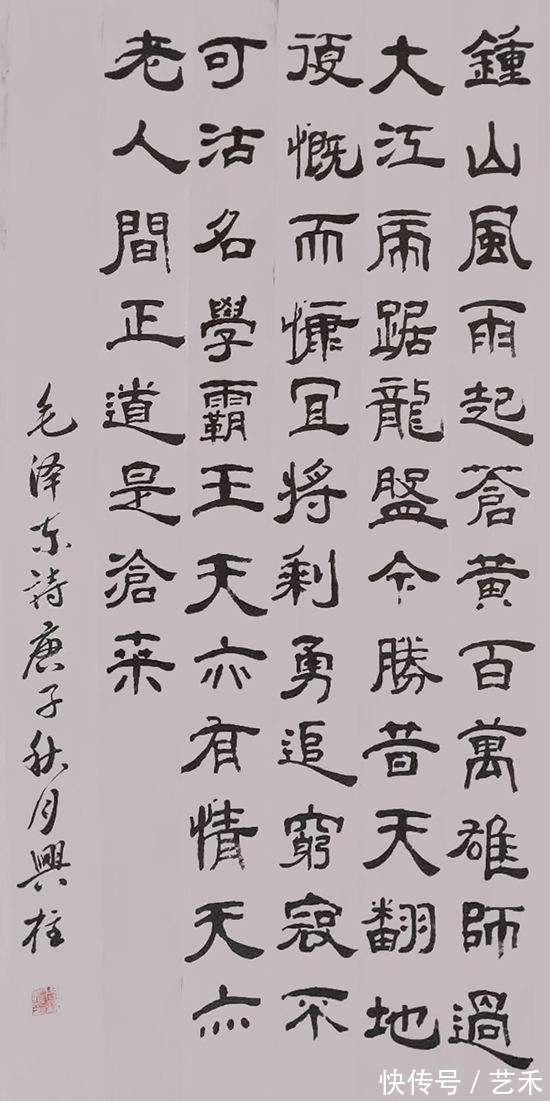 鍾山風雨起蒼黃百萬雄師過
大江虎踞龍盤今勝昔天翻地
覆慨而慷宜將剩勇追窮寇不
可沽名學霸王天亦有情天亦
老人間正道是滄桒
毛泽东詩庚子秋月興柱
快传号/艺禾